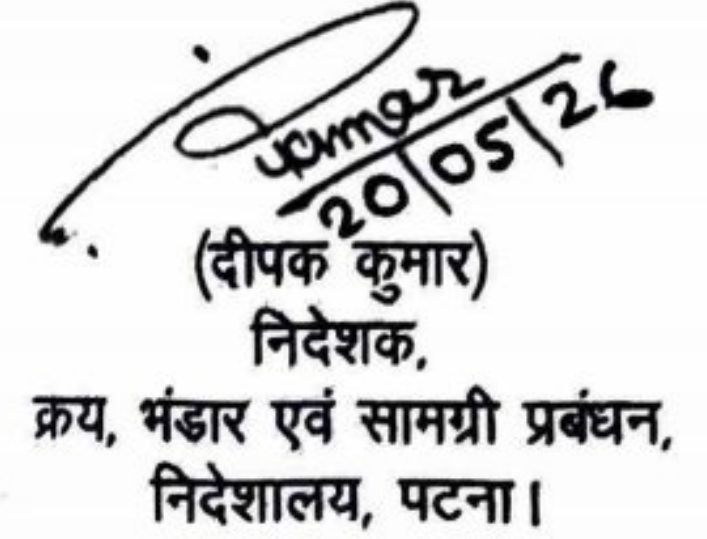 Kumar
20/05/26
(दीपक कुमार)
निदेशक,
क्रय, भंडार एवं सामग्री प्रबंधन,
निदेशालय, पटना।